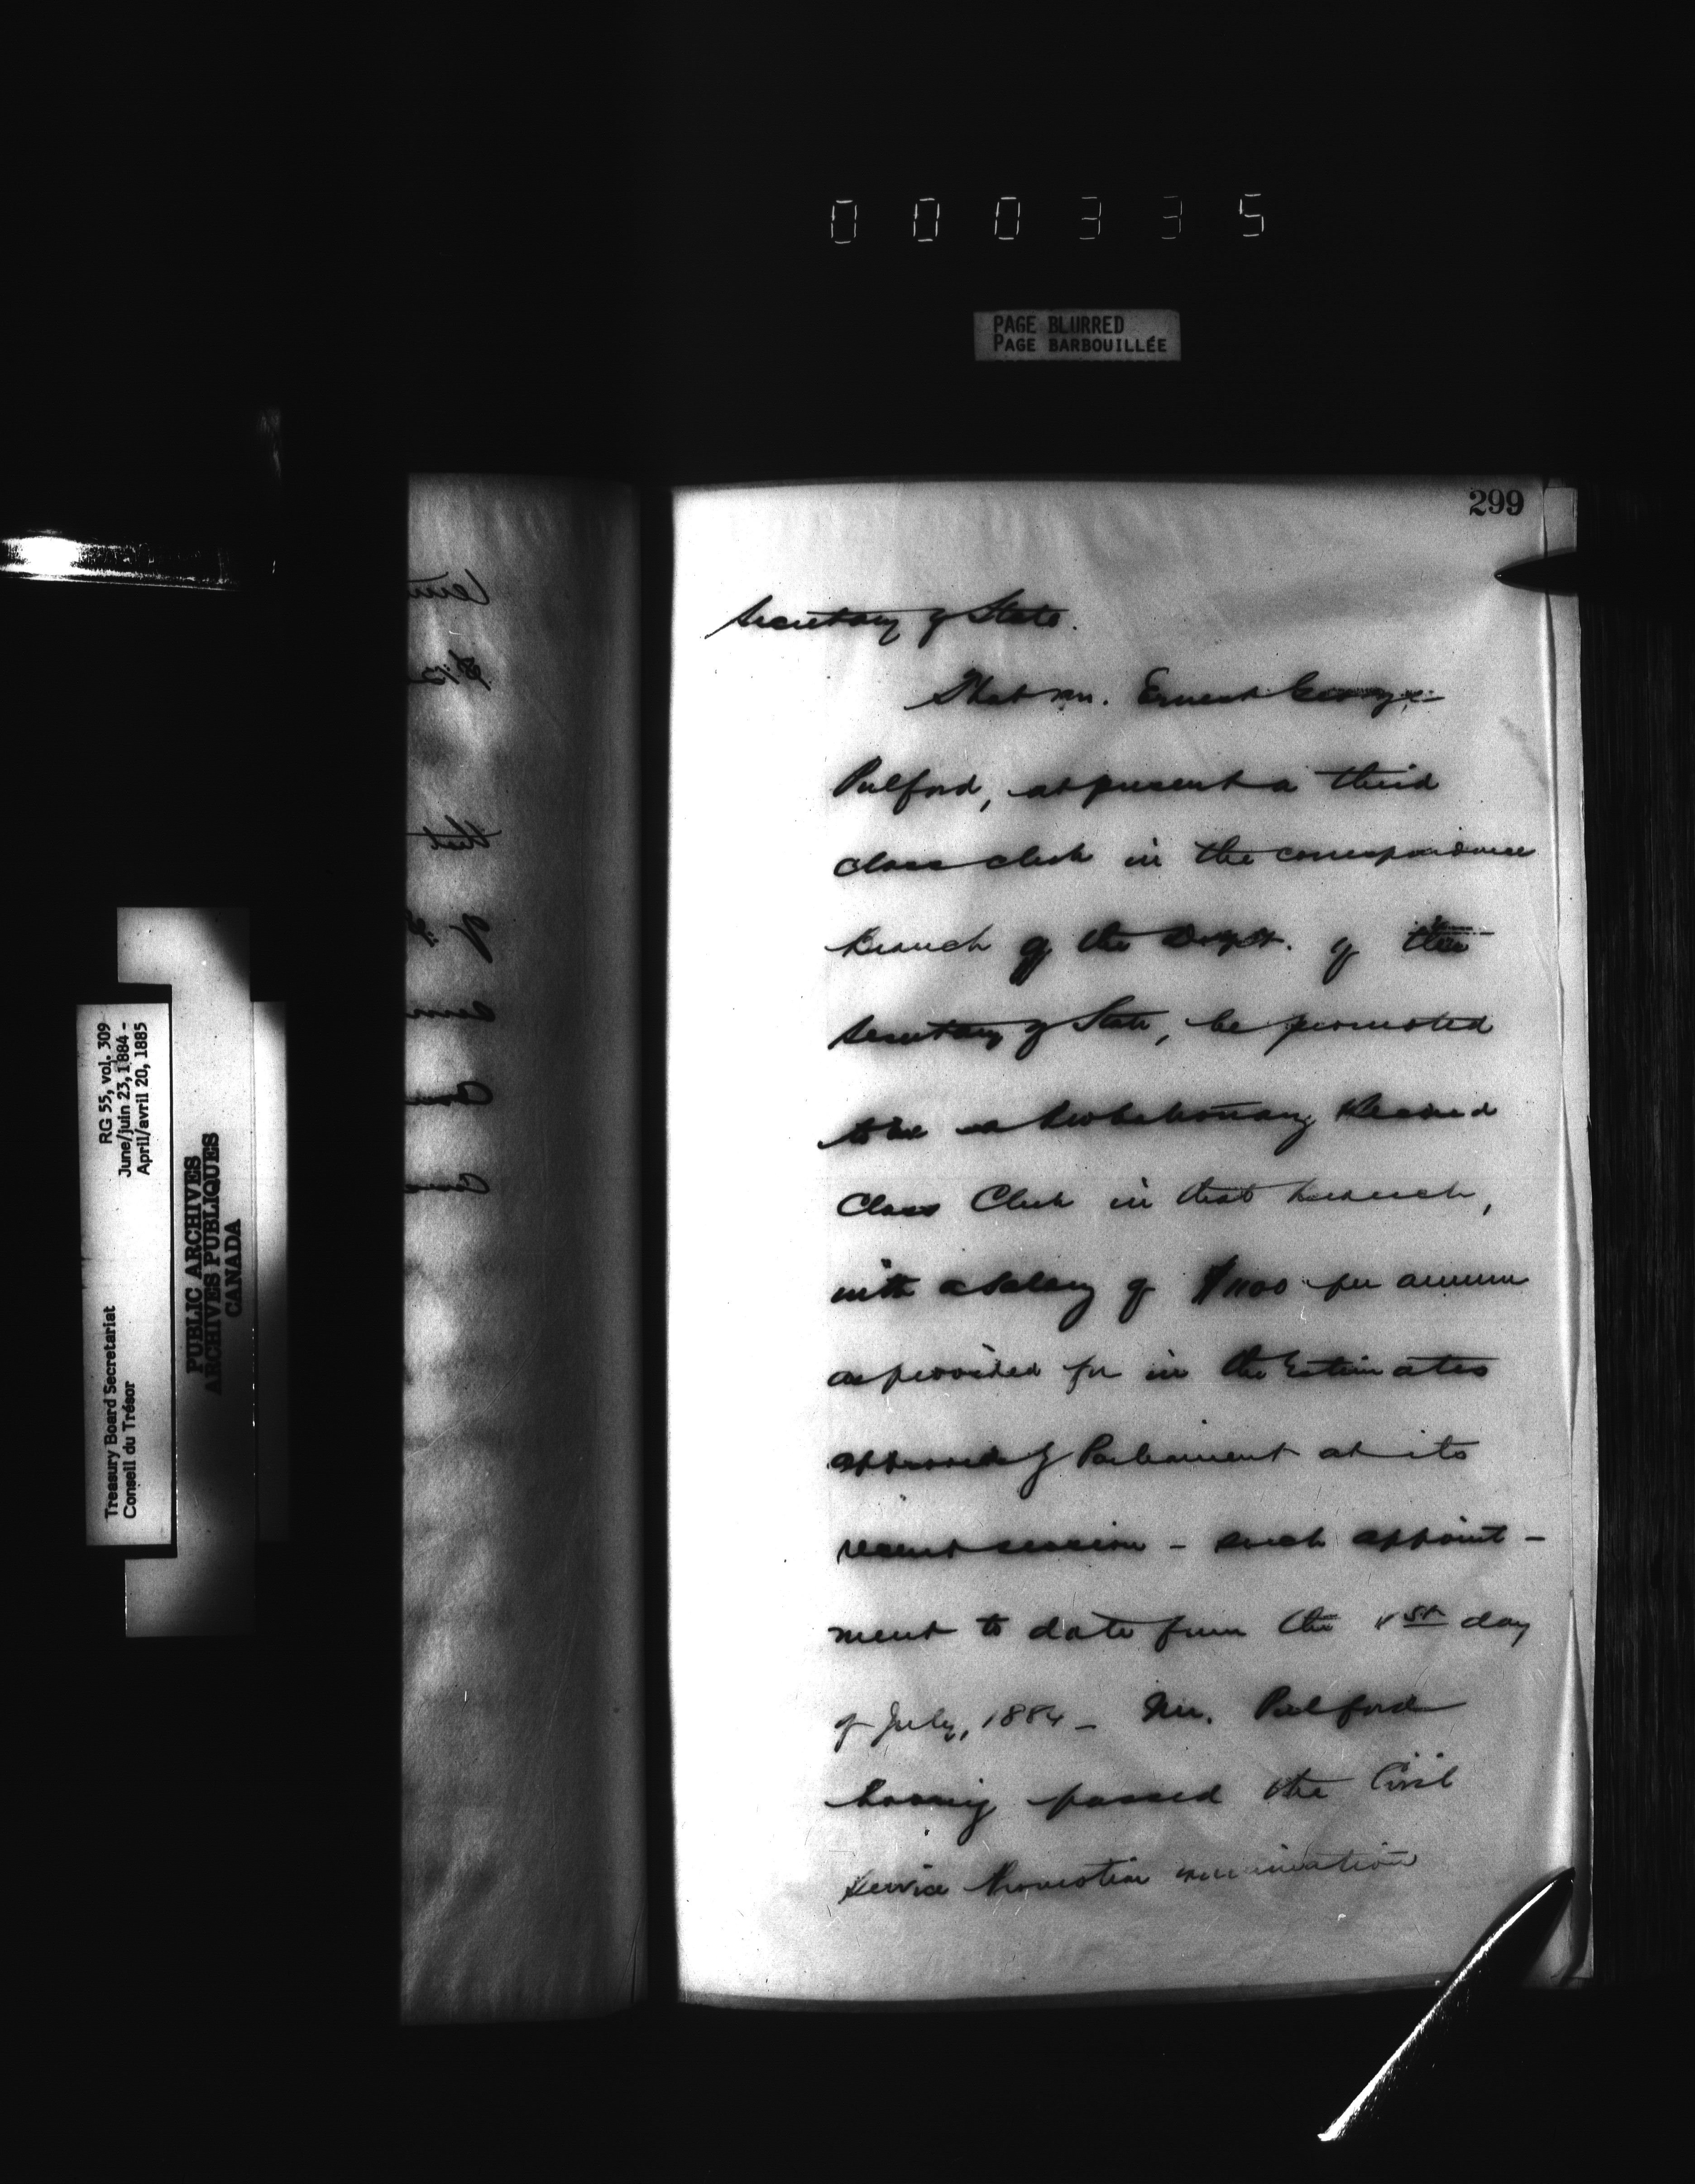 000335
PAGE BLURRED
PAGE BARBOUILLÉE
299
Secretary of State.
That Mr. Ernest George
Pulford, at present a third
class clerk in the correspondence
branch of the Dept. of the
Secretary of State, be promoted
to be a probationary Second
Class Clerk in that branch,
with a salary of $1100 per annum
as provided for in the Estimates
approved by Parliament at its
recent session – such appoint-
ment to date from the 1st day
of July, 1884 – Mr. Pulford
having passed the Civil
Service Promotion examination
RG 55, vol. 309
June/juin 23, 1884 -
April/avril 20, 1885
Treasury Board Secretariat
Conseil du Trésor
PUBLIC ARCHIVES
ARCHIVES PUBLIQUES
CANADA